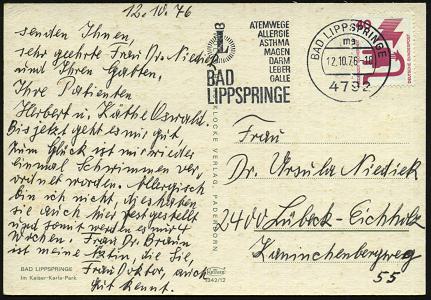 12.10.76
senden Ihnen,
sehr geehrte Frau Dr. Niediek
und Ihren Gatten,
Ihre Patienten
Herbert u. Käthe Oswald.
Bis jetzt geht es mir gut,
zum Glück ist mir wieder
einmal Schwimmen ver-
ordnet worden. Allergisch
bin ich nicht, das haben
sie auch hier festgestellt
und somit werden es nur 4
Wochen. Frau Dr. Braun
ist meine Ärztin, die Sie,
Frau Doktor, auch
gut kennt.
BAD LIPPSPRINGE
Im Kaiser-Karls-Park
KLOCKE VERLAG, PADERBORN
1342/12
BAD
LIPPSPRINGE
ATEMWEGE
ALLERGIE
ASTHMA
MAGEN
DARM
LEBER
GALLE
BAD LIPPSPRINGE
ma
12.10.76-18
4792
40
DEUTSCHE BUNDESPOST
Frau
Dr. Ursula Niediek
2400 Lübeck-Eichholz
Kaninchenbergweg
55